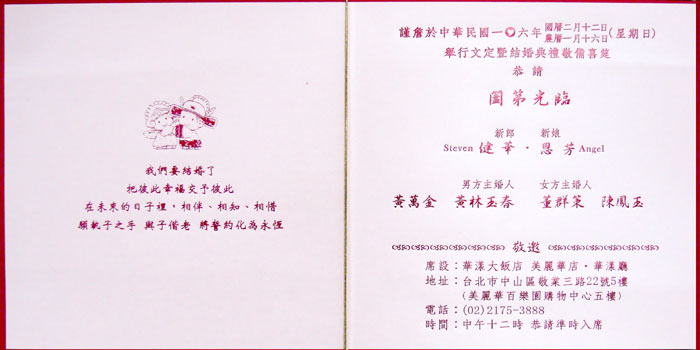 我們要結婚了
把彼此幸福交予彼此
在未來的日子裡，相伴、相知、相惜
願執子之手 與子偕老 將誓約化為永恆
謹詹於中華民國一〇六年國曆二月十二日(星期日)
農曆一月十六日
舉行文定暨結婚典禮敬備喜筵
恭請
闔第光臨
新郎 新娘
Steven 健華．恩芳 Angel
男方主婚人 女方主婚人
黃萬金 黃林玉春 董群策 陳鳳玉
敬邀
席設：華漾大飯店 美麗華店．華漾廳
地址：台北市中山區敬業三路22號5樓
(美麗華百樂園購物中心五樓)
電話：(02)2175-3888
時間：中午十二時 恭請準時入席